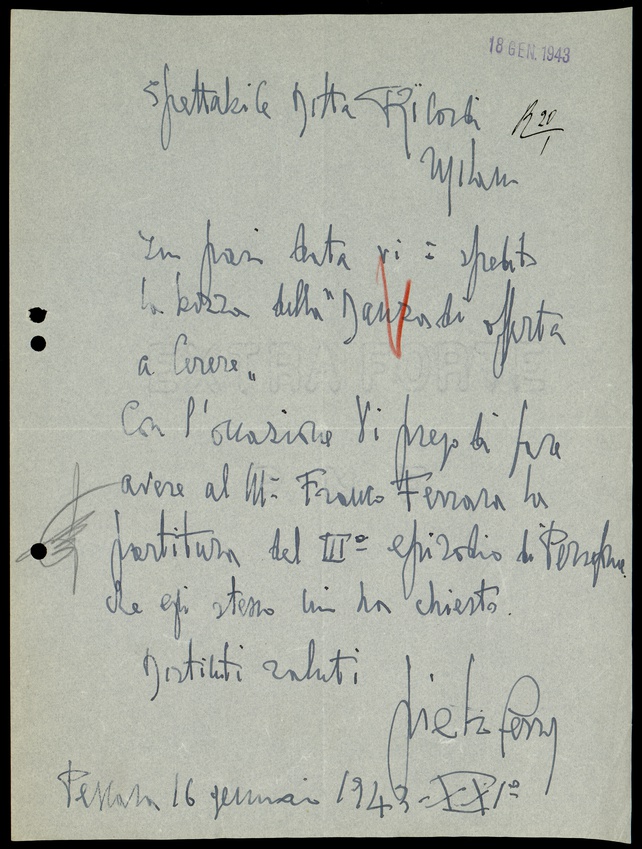 18 GEN. 1943
Spettabile Ditta Ricordi
R 20/1
Milano
In pari data vi è spedito
la bozza della "Danza di offerta
a Cerere"
Con l'occasione Vi prego di fare
avere al M° Franco Ferrara la
partitura del III° episodio di Persefone
che egli stesso mi ha chiesto.
Distinti saluti
Pescara 16 gennaio 1943 - XXI°